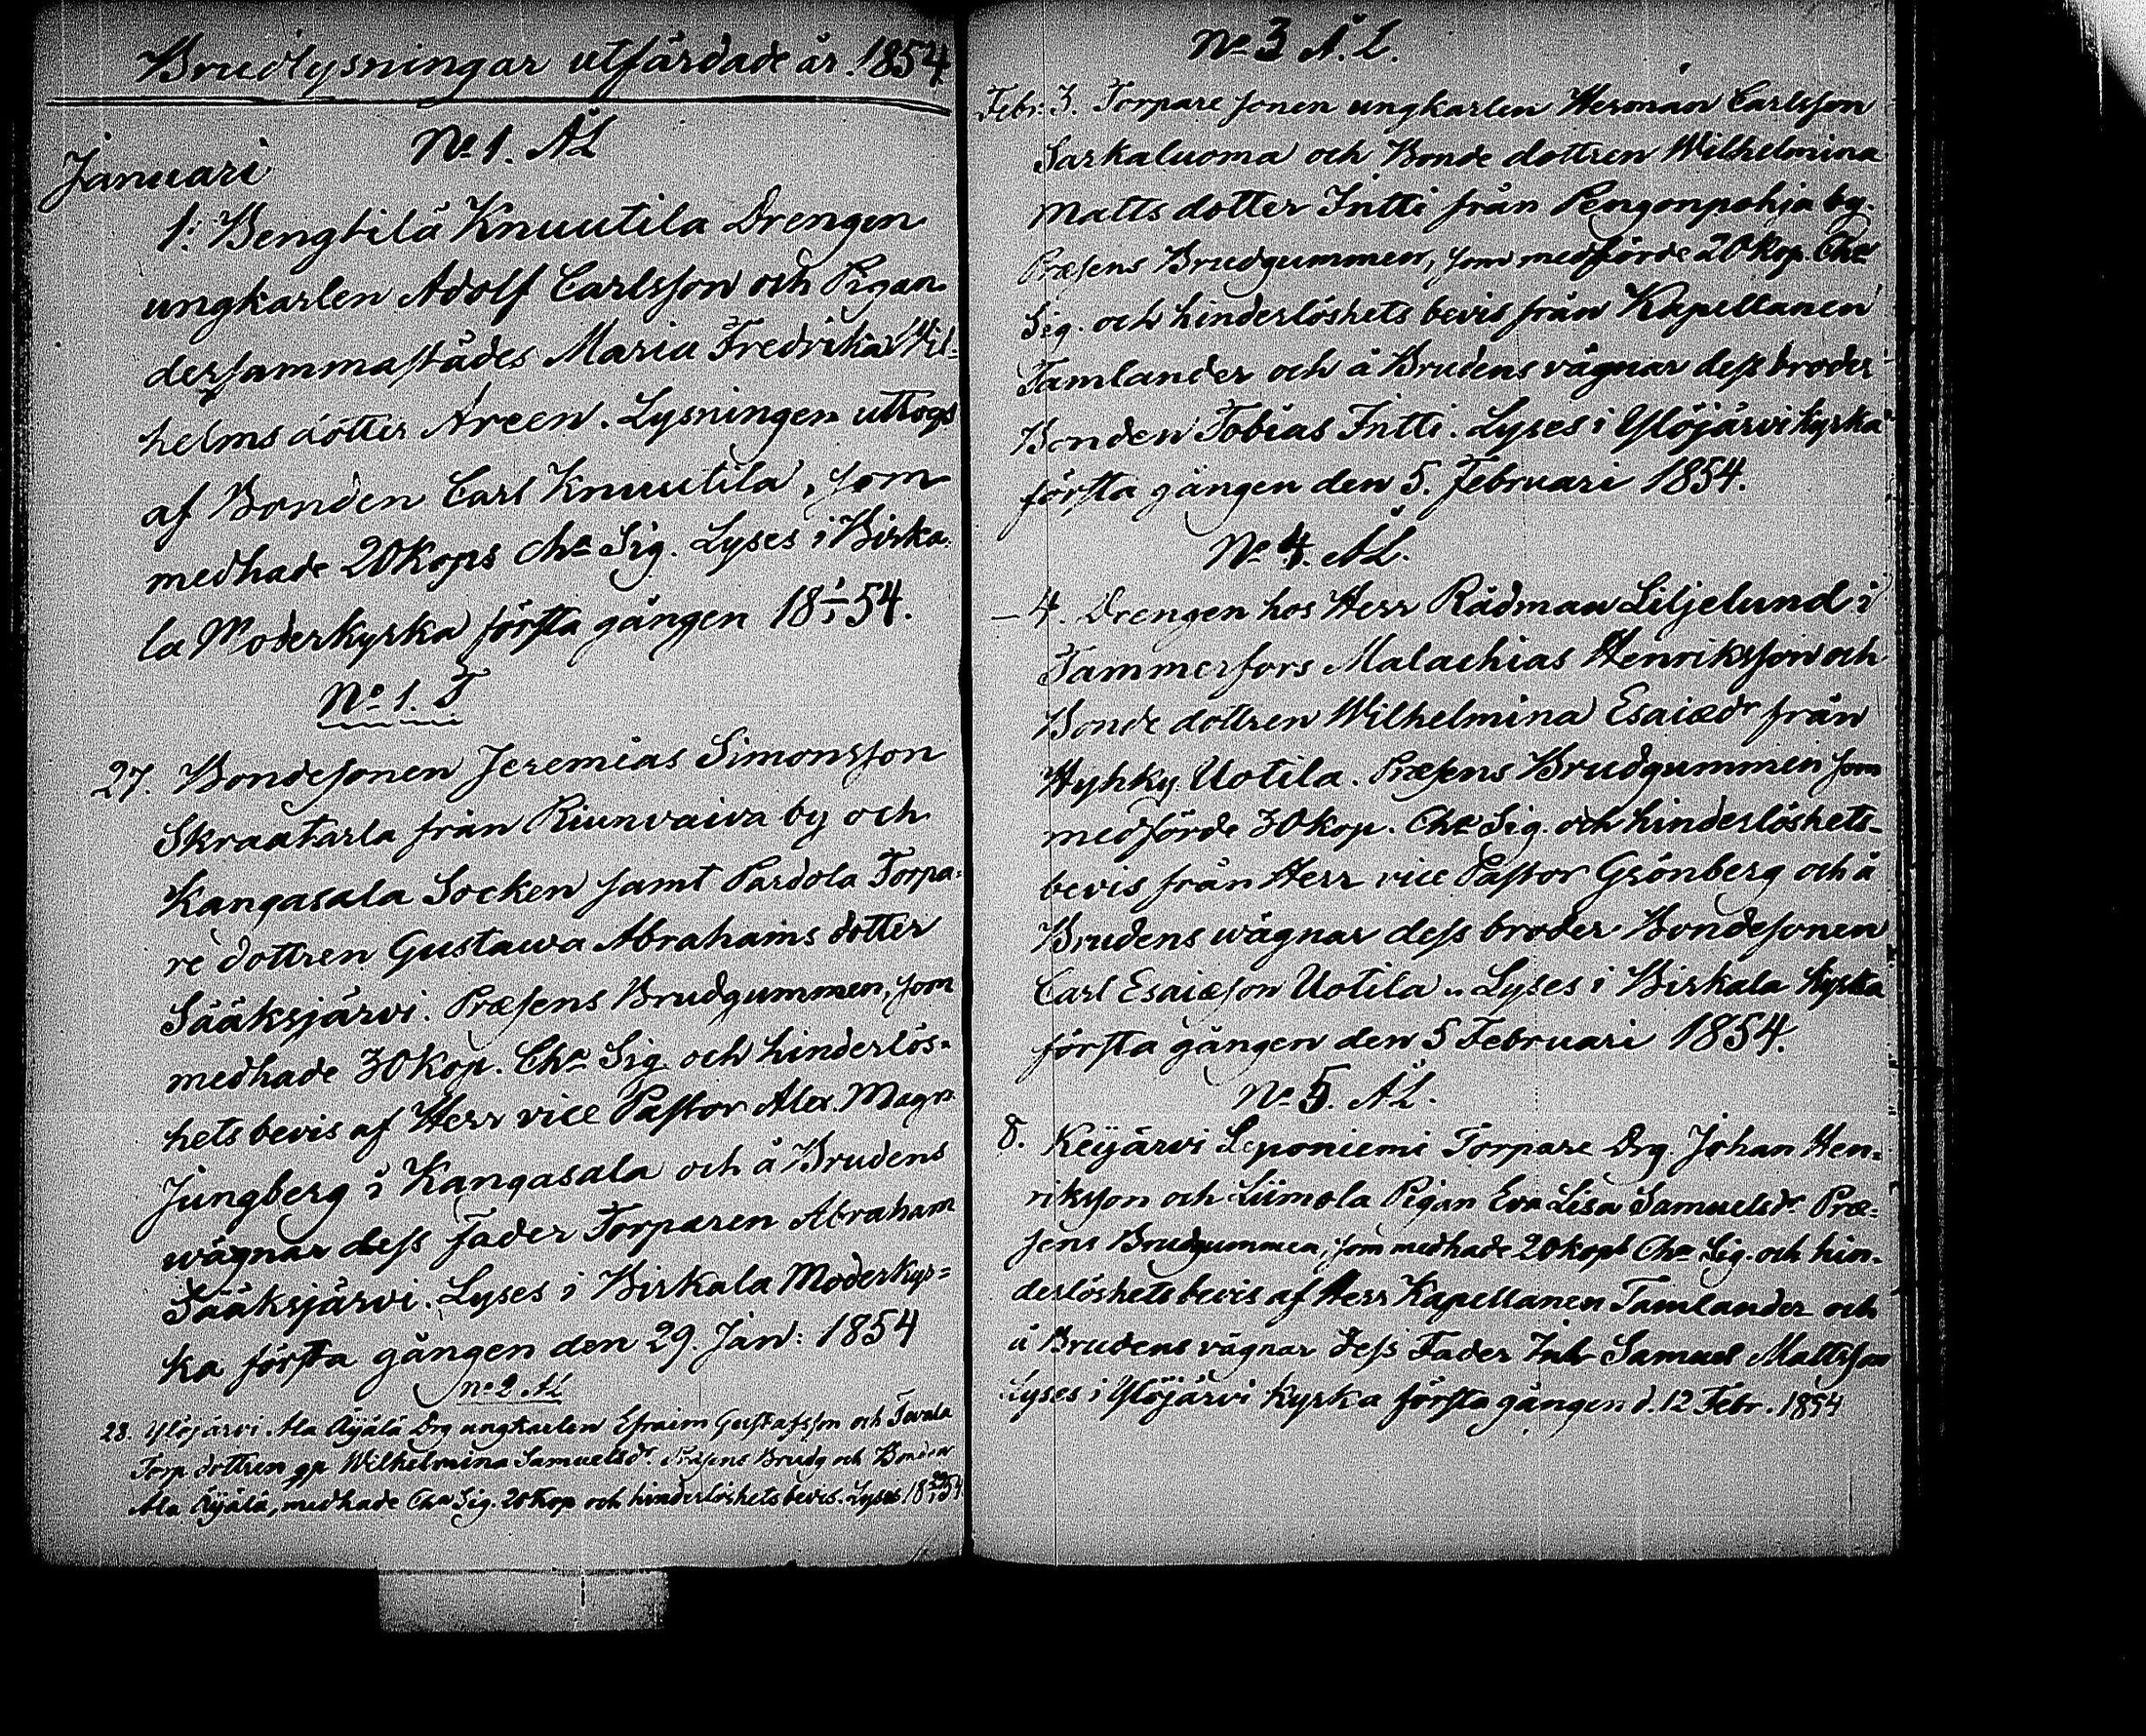 Brudlysningar utfärdade år 1854
No 1. ÅL
Januari
1. Bengtilä Knuutila Drengen
ungkarlen Adolf Carlsson och Pigan
dersammastädes Maria Fredrika Wil=
helmsdotter Areen. Lysningen uttogs
af Bonden Carl Knuutila, som
medhade 20 kops Cha Sig. Lyses i Birka=
la Moderkyrka första gången 18 1/1 54.
No 1. T
27. Bondesonen Jeremias Simonsson
Skraatarla från Riunvaiva by och
Kangasala Socken samt Pardola Torpa=
re dottren Gustawa Abrahams dotter
Sääksjärvi. Præsens Brudgummen, som
medhade 30 Kop. Cha Sig och hinderlös=
hets bevis af Herr vice Pastor Alex. Magn.
Jungberg i Kangasala och å Brudens
wägnar dess fader Torparen Abraham
Sääksjärvi. Lyses i Birkala Moderkyr=
ka första gången den 29. Jan: 1854
No 2 ÅL
28. Ylöjärvi Ala Äijälä Drg ungkarlen Efraim Gustafsson och
Torp dottren Wilhelmina Samuelsdr. Præsens Brudg och Bonden
Ala Äijälä, medhade Cha Sig. 20 Kop och hinderlöshets bevis. Lyses 18 29/1 54
No 3 Å.L.
Febr: 3. Torpare sonen ungkarlen Herman Carlsson
Sarkaluoma och Bonde dottren Wilhelmina
Matts dotter Intti från Pengonpohja by.
Præsens Brudgummen, som medförde 20 Kop. Cha
Sig. och hinderlöshets bevis från Kapellanen
Tamlander och å Brudens vägnar dess broder
Bonden Tobias Intti. Lyses i Ylöjärvi kyrka
första gången den 5. Februari 1854.
No 4. ÅL.
— 4. Drengen hos Herr Rådman Liljelund i
Tammerfors Malachias Henriksson och
Bonde dottren Wilhelmina Esaiædr från
Hyhky Uotila. Præsens Brudgummen som
medförde 30 kop. Cha Sig. och hinderlöshets=
bevis från Herr vice Pastor Grönberg och å
Brudens wägnar dess broder Bondesonen
Carl Esaiæson Uotila.. Lyses i Birkala Kyrka
första gången den 5 Februari 1854.
No 5. ÅL.
8. Keijärvi Leponiemi Torpare Drg. Johan Hen=
riksson och Liimola Pigan Eva Lisa Samuelsdr Præ=
sens Brudgummen, som medhade 20 kops Cha Sig. och hin=
derlöshets bevis af Herr Kapellanen Tamlander och
å Brudens vägnar dess Fader Inh Samuel Mattsson
Lyses i Ylöjärvi Kyrka första gången d. 12 Febr. 1854